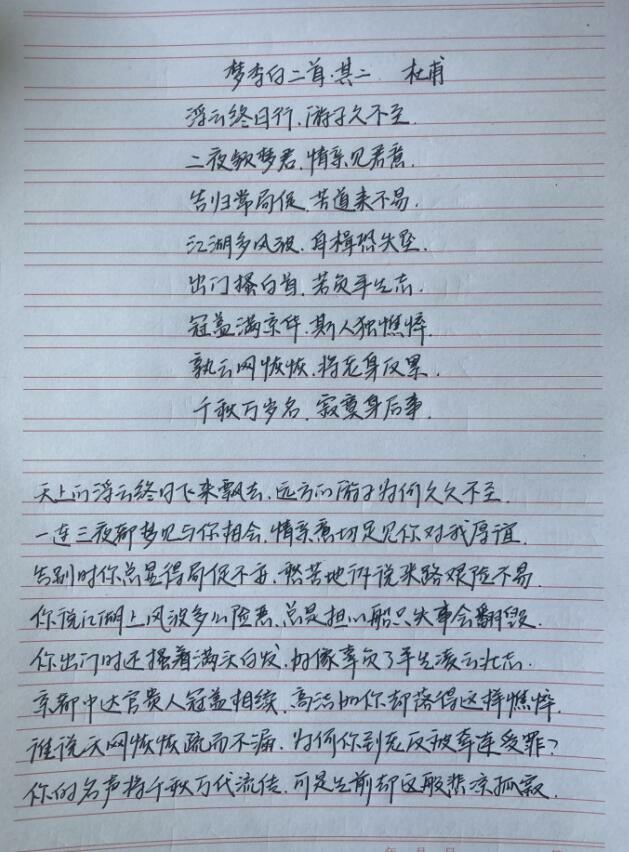 梦李白二首·其二 杜甫
浮云终日行,游子久不至.
三夜频梦君,情亲见君意.
告归常局促,苦道来不易.
江湖多风波,舟楫恐失坠.
出门搔白首,若负平生志.
冠盖满京华,斯人独憔悴.
孰云网恢恢,将老身反累.
千秋万岁名,寂寞身后事.
天上的浮云终日飞来飘去,远方的游子为何久久不至.
一连三夜都梦见与你相会,情亲意切足见你对我厚谊.
告别时你总显得局促不安,愁苦地诉说来路艰险不易.
你说江湖上风波多么险恶,总是担心船只失事会翻毁.
你出门时还搔着满头白发,好像辜负了平生凌云壮志.
京都中达官贵人冠盖相续,高洁的你却落得这样憔悴.
谁说天网恢恢疏而不漏,为何你到老反被牵连受罪?
你的名声将千秋万代流传,可是生前却这般悲凉孤寂.
年 月 日